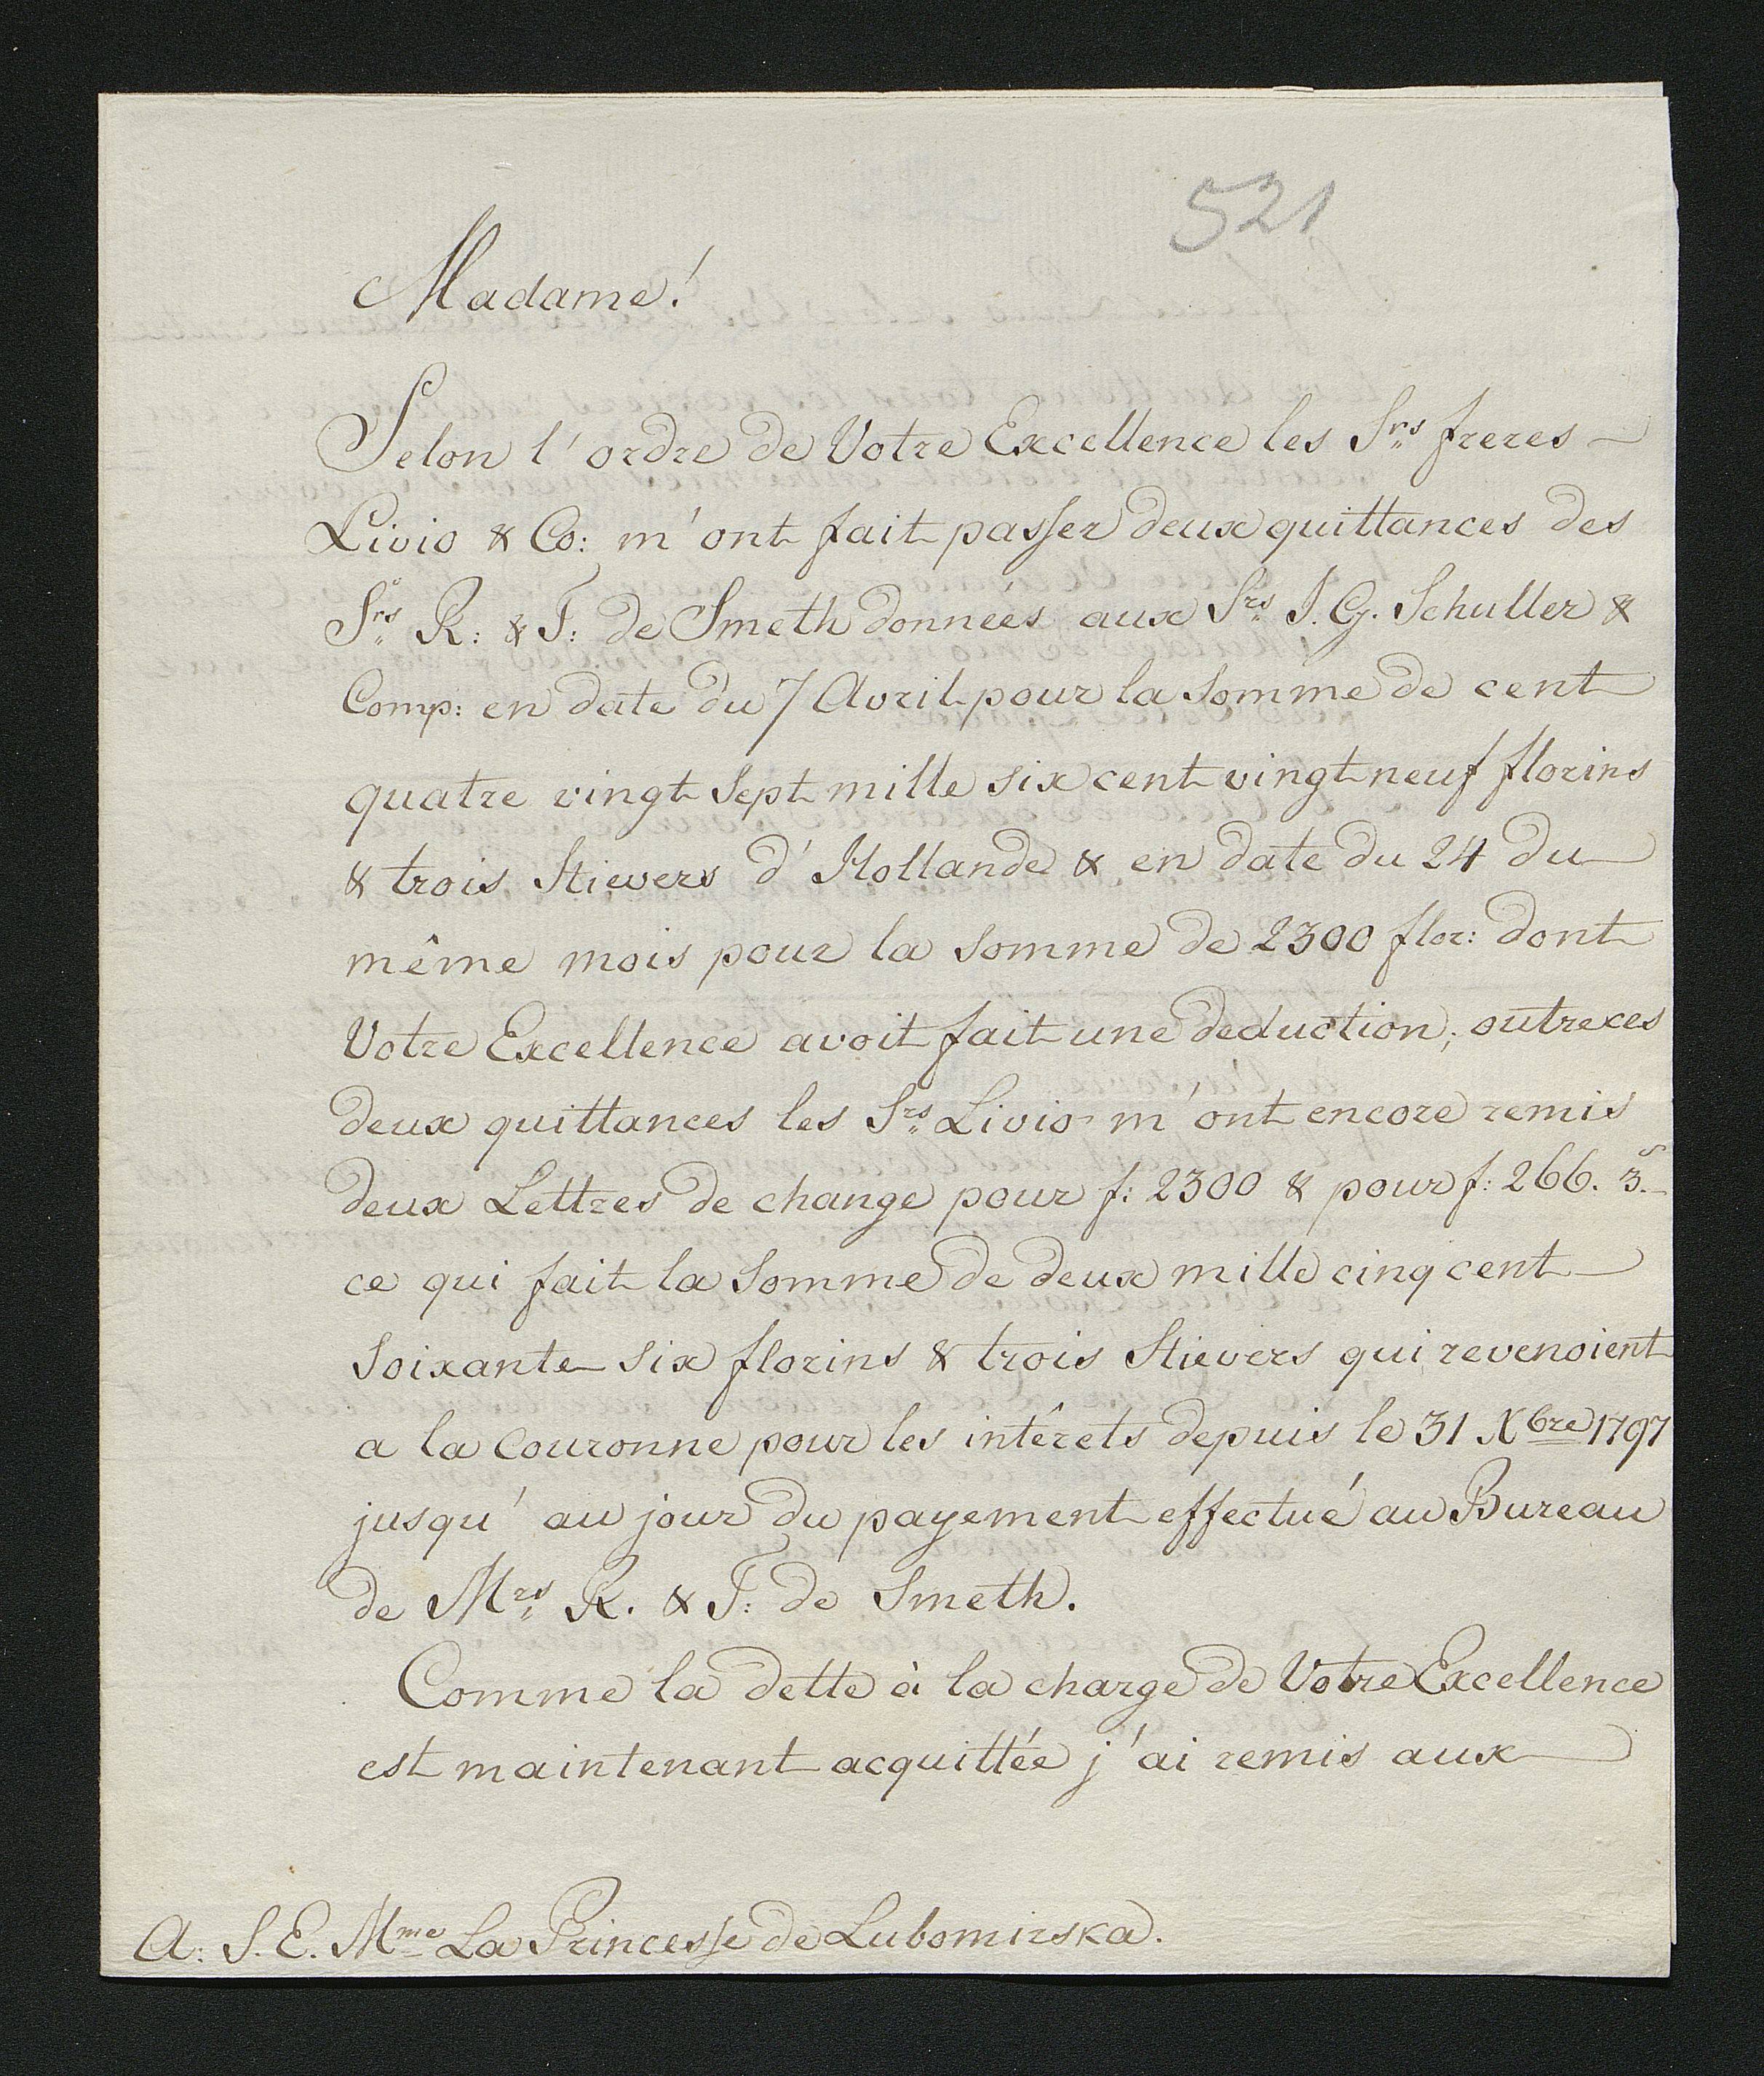 521
Madame!
Selon l'ordre de Votre Excellence les Srs freres
Livio & Co: m'ont fait passer deux quittances des
Srs R: & T: de Smeth données aux Srs J. G. Schuller &
Comp: en date du 7 Avril pour la Somme de cent
quatre vingt Sept mille six cent vingt neuf florins
& trois Stievers d'Hollande & en date du 24 du
même mois pour la Somme de 2300 flor: dont
Votre Excellence avoit fait une deduction; outre ces
deux quittances les Srs Livio m'ont encore remis
deux Lettres de change pour f: 2300 & pour f: 266. 3.s
ce qui fait la Somme de deux mille cinq cent
Soixante six florins & trois Stievers qui revenoient
a la Couronne pour les intêrets depuis le 31 Xbre 1797
jusqu'au jour du payement effectué au Bureau
de Mrs R. & T: de Smeth.
Comme la dette à la charge de Votre Excellence
est maintenant acquittée j'ai remis aux
A: S. E. Mme La Princesse de Lubomirska.